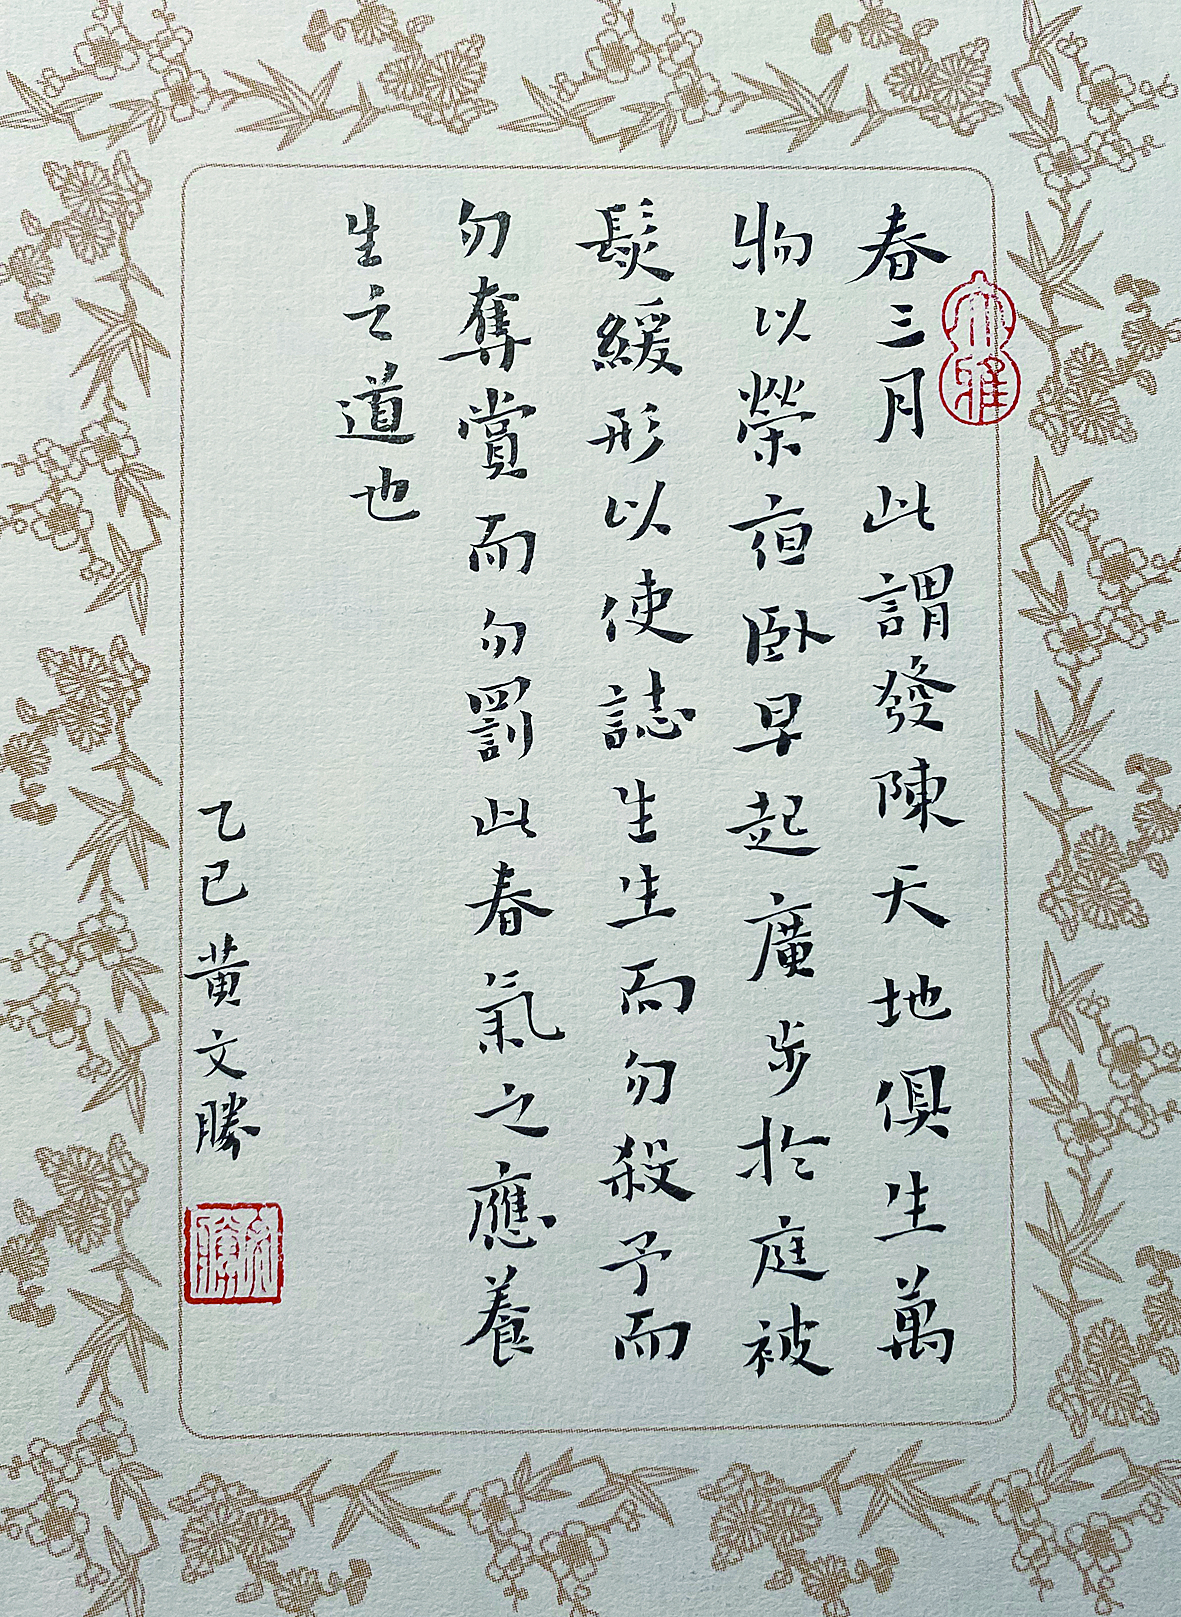 春三月此謂發陳天地俱生萬
物以榮夜卧早起廣步於庭被
髮緩形以使誌生生而勿殺予而
勿奪賞而勿罰此春氣之應養
生之道也
乙巳黃文勝
大雅